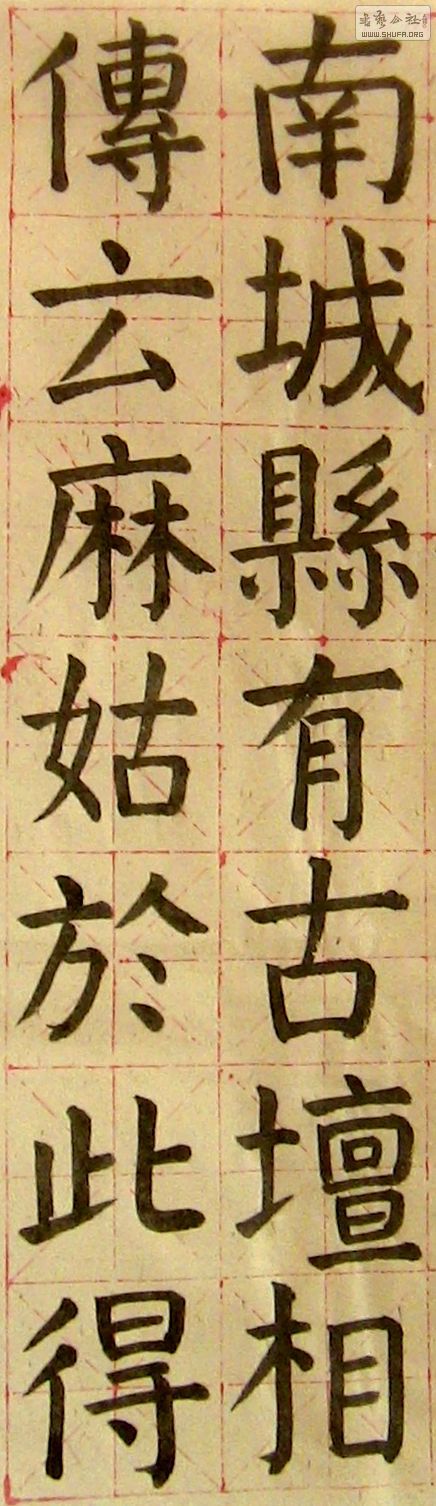 南城縣有古壇相
傳云麻姑於此得
书艺公社
WWW.SHUFA.ORG